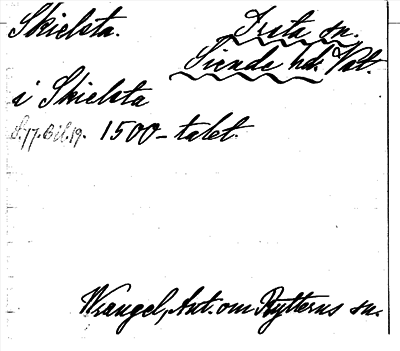 Skielsta. Irsta sn.
Siende hd. Vstm.
i Skielsta
S.77. Bil. 19. 1500-talet.
Wrangel, Ant. om Rytterns sn.